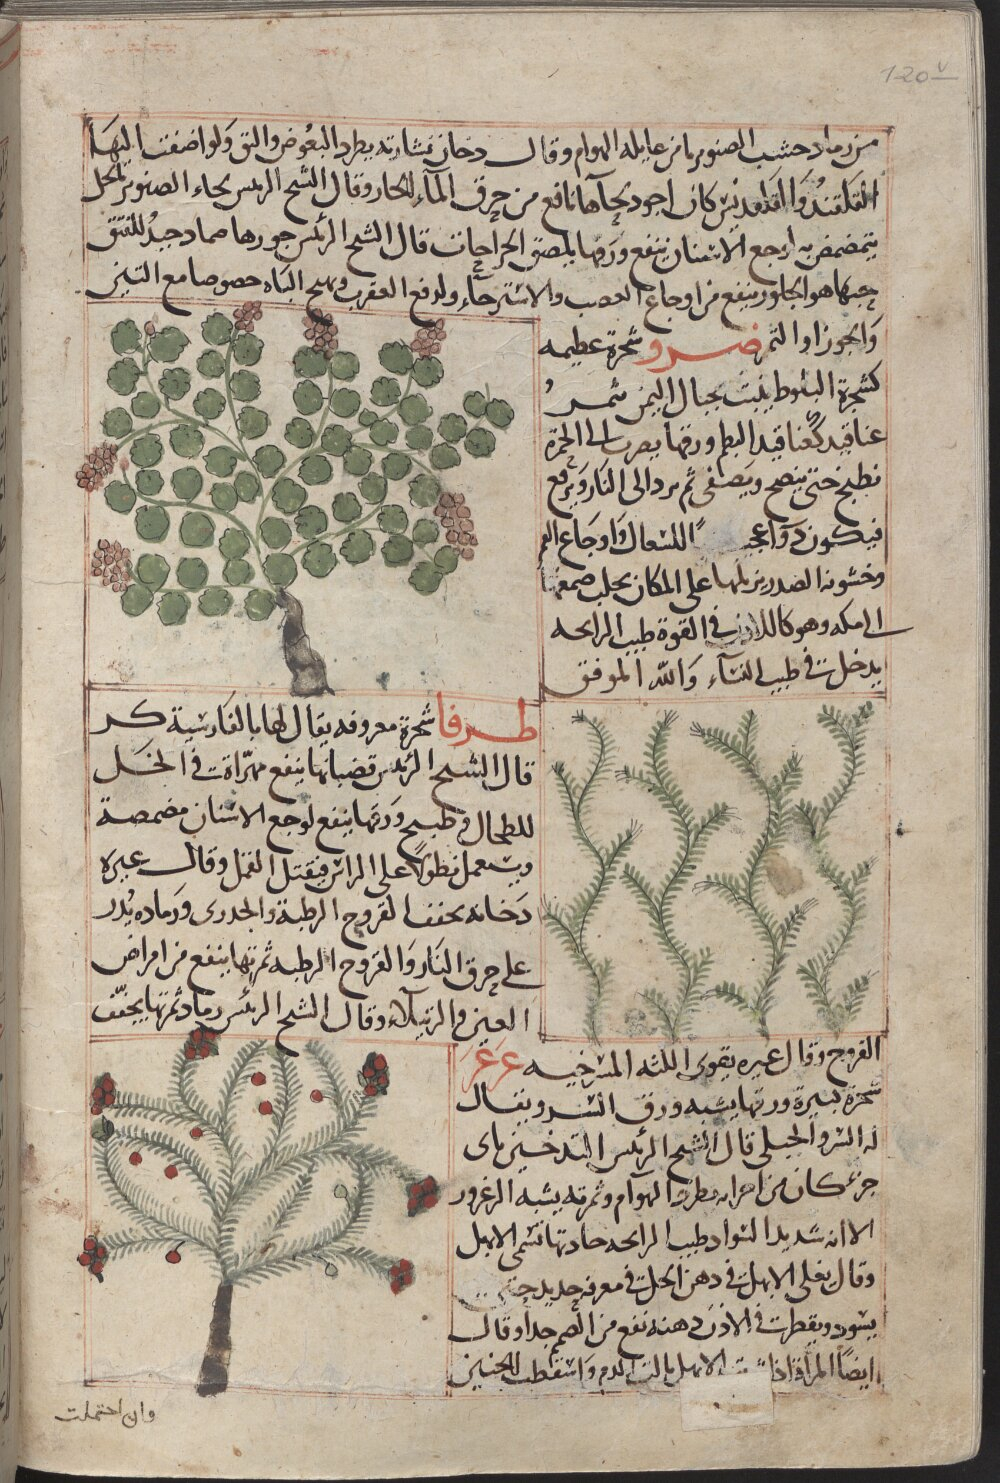 120v
من رماد خشب الصنوبر مانز عامله الهوام وقال دخان نشارته يطرد البعوض والبق ولو اضفت اليها
القلقند والقلقديس كان اجود لحاها نافع من حرق الماء الحار وقال الشيخ الرئيس لحاء الصنوبر بالخل
يتمضمض به لوجع الاسنان ينفع ورقها يلصق الجراحات قال الشيخ الرئيس جورها ضماد جيد للفتق
حبها هو الجلوز ينفع من اوجاع العصب والاسترخاء ولدغ العقرب ويهيج الباه خصوصا مع التين
والجوز او التمر ضرو شجرة عظيمه
كشجرة البلوط ينبت بجبال اليمن ثمر
عناقيد كعناقيد البطم ورقها يضرب الى الحمرة
يطبخ حتى ينضج ويصفى ثم يرد الى النار ويرفع
فيكون دواء عجيبا للسعال واوجاع الفم
وخشونة الصدر يزيلها على المكان يجلب صمغها
الى مكه وهو كاللاذن في القوة طيب الرايحه
يدخل في طيب النساء والله الموفق
طرفا شجرة معروفه يقال لها بالفارسية كز
قال الشيخ الرئيس قضبانها ينفع مهراة في الخل
للطحال وطبيخ ورقها ينفع لوجع الاسنان مضمضة
ويستعمل نطولا على الراس فيقتل القمل وقال غيره
دخانه يجفف القروح الرطبة والجدرى ورماده يذر
على حرق النار والقروح الرطبه ثمرتها ينفع من امراض
العين والرتيلاء وقال الشيخ الرئيس رماد ثمرتها يجفف
القروح وقال غيره يقوى اللثه المسترخيه عرعر
شجرة كبيرة ورقها يشبه ورق السرو ويقال
له السرو الجبلى قال الشيخ الرئيس التدخين باى
جزء كان من اجزائه يطرد الهوام وثمرته يشبه الزعرور
الا انه شديد السواد طيب الرايحه حادتها تسمى الابهل
وقال يغلى الابهل في دهن الخل في مغرفه حديد حتى
يسود ويقطر في الاذن دهنه نفع من الصم جدا وقال
ايضا المراة اذا الابهل بالت الدم واسقطت الجنين
وان احتملت